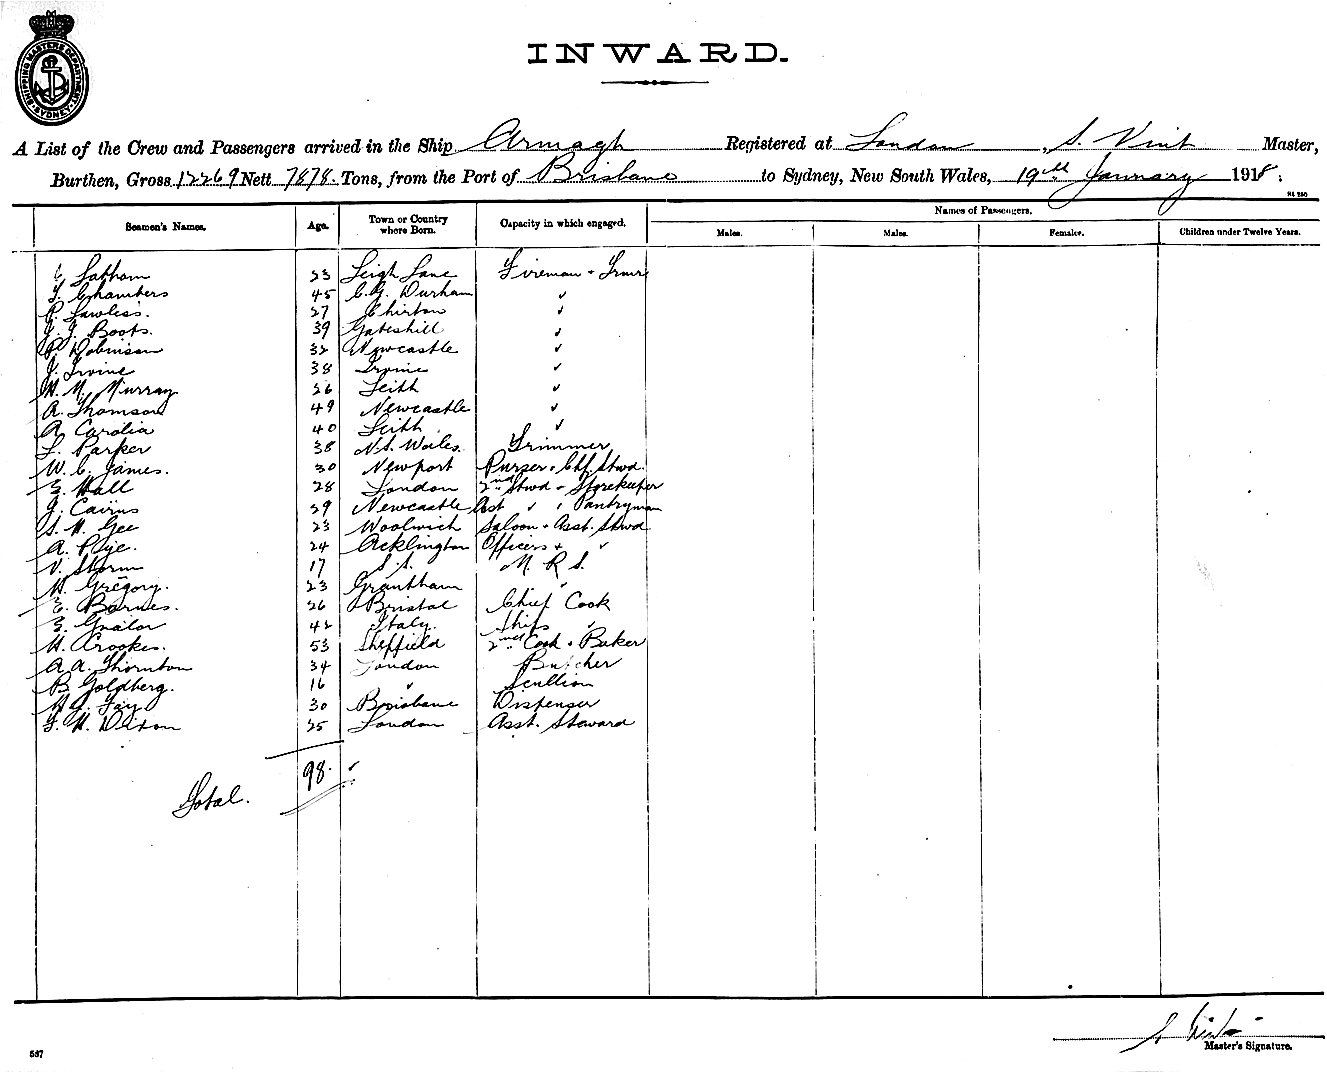 SHIPPING MASTERS DEPARTMENT
SYDNEY
INWARD.
A List of the Crew and Passengers arrived in the Ship Armagh Registered at London , S. Vint Master,
Burthen, Gross 12269 Nett 7878 Tons, from the Port of Brisbane to Sydney, New South Wales, 19th January 1918;
Seamen's Names. Age. Town or Country where Born. Capacity in which engaged. Names of Passengers.
Males. Males. Females. Children under Twelve Years.
Latham 23 Leigh Lanc Fireman + Trmr
Chambers 45 C.G. Durham ✓
P. Lawless. 27 Chirton ✓
J. J. Boots. 39 Gateshill ✓
R. Robinson 32 Newcastle ✓
J. Irvine 38 Irvine ✓
W. M. Murray 26 Leith ✓
A. Thomson 49 Newcastle ✓
A. Carolia 40 Leith ✓
L. Parker 38 N.S. Wales. Trimmer
W. C. James. 30 Newport Purser + Chf. Stwd.
E. Wall 28 London 2nd Stwd + Storekeeper
J. Cairns 29 Newcastle Asst ✓ , Pantryman
S. H. Gee 23 Woolwich Saloon + Asst. Stwd
A. Pye. 24 Acklington Officers + ✓
V. Storm 17 S.A. M. R. S.
H. Gregory. 23 Grantham ✓
E. Barnes. 26 Bristol Chief Cook
42 Italy. Ships ✓
H. Crookes. 53 Sheffield 2nd Cook + Baker
A. A. Thornton 34 London Butcher
B. Goldberg. 16 ✓ Scullion
30 Brisbane Dispenser
25 London Asst. Steward
98. ✓
Total.
S. Vint
Master's Signature.
567